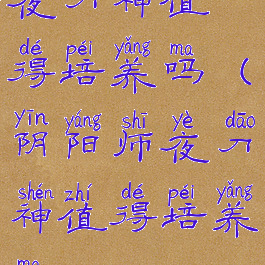 夜刀神值
dé péi yǎng ma
得培养吗（
yīn yáng shī yè dāo
阴阳师夜刀
shén zhí dé péi yǎng
神值得培养
ma